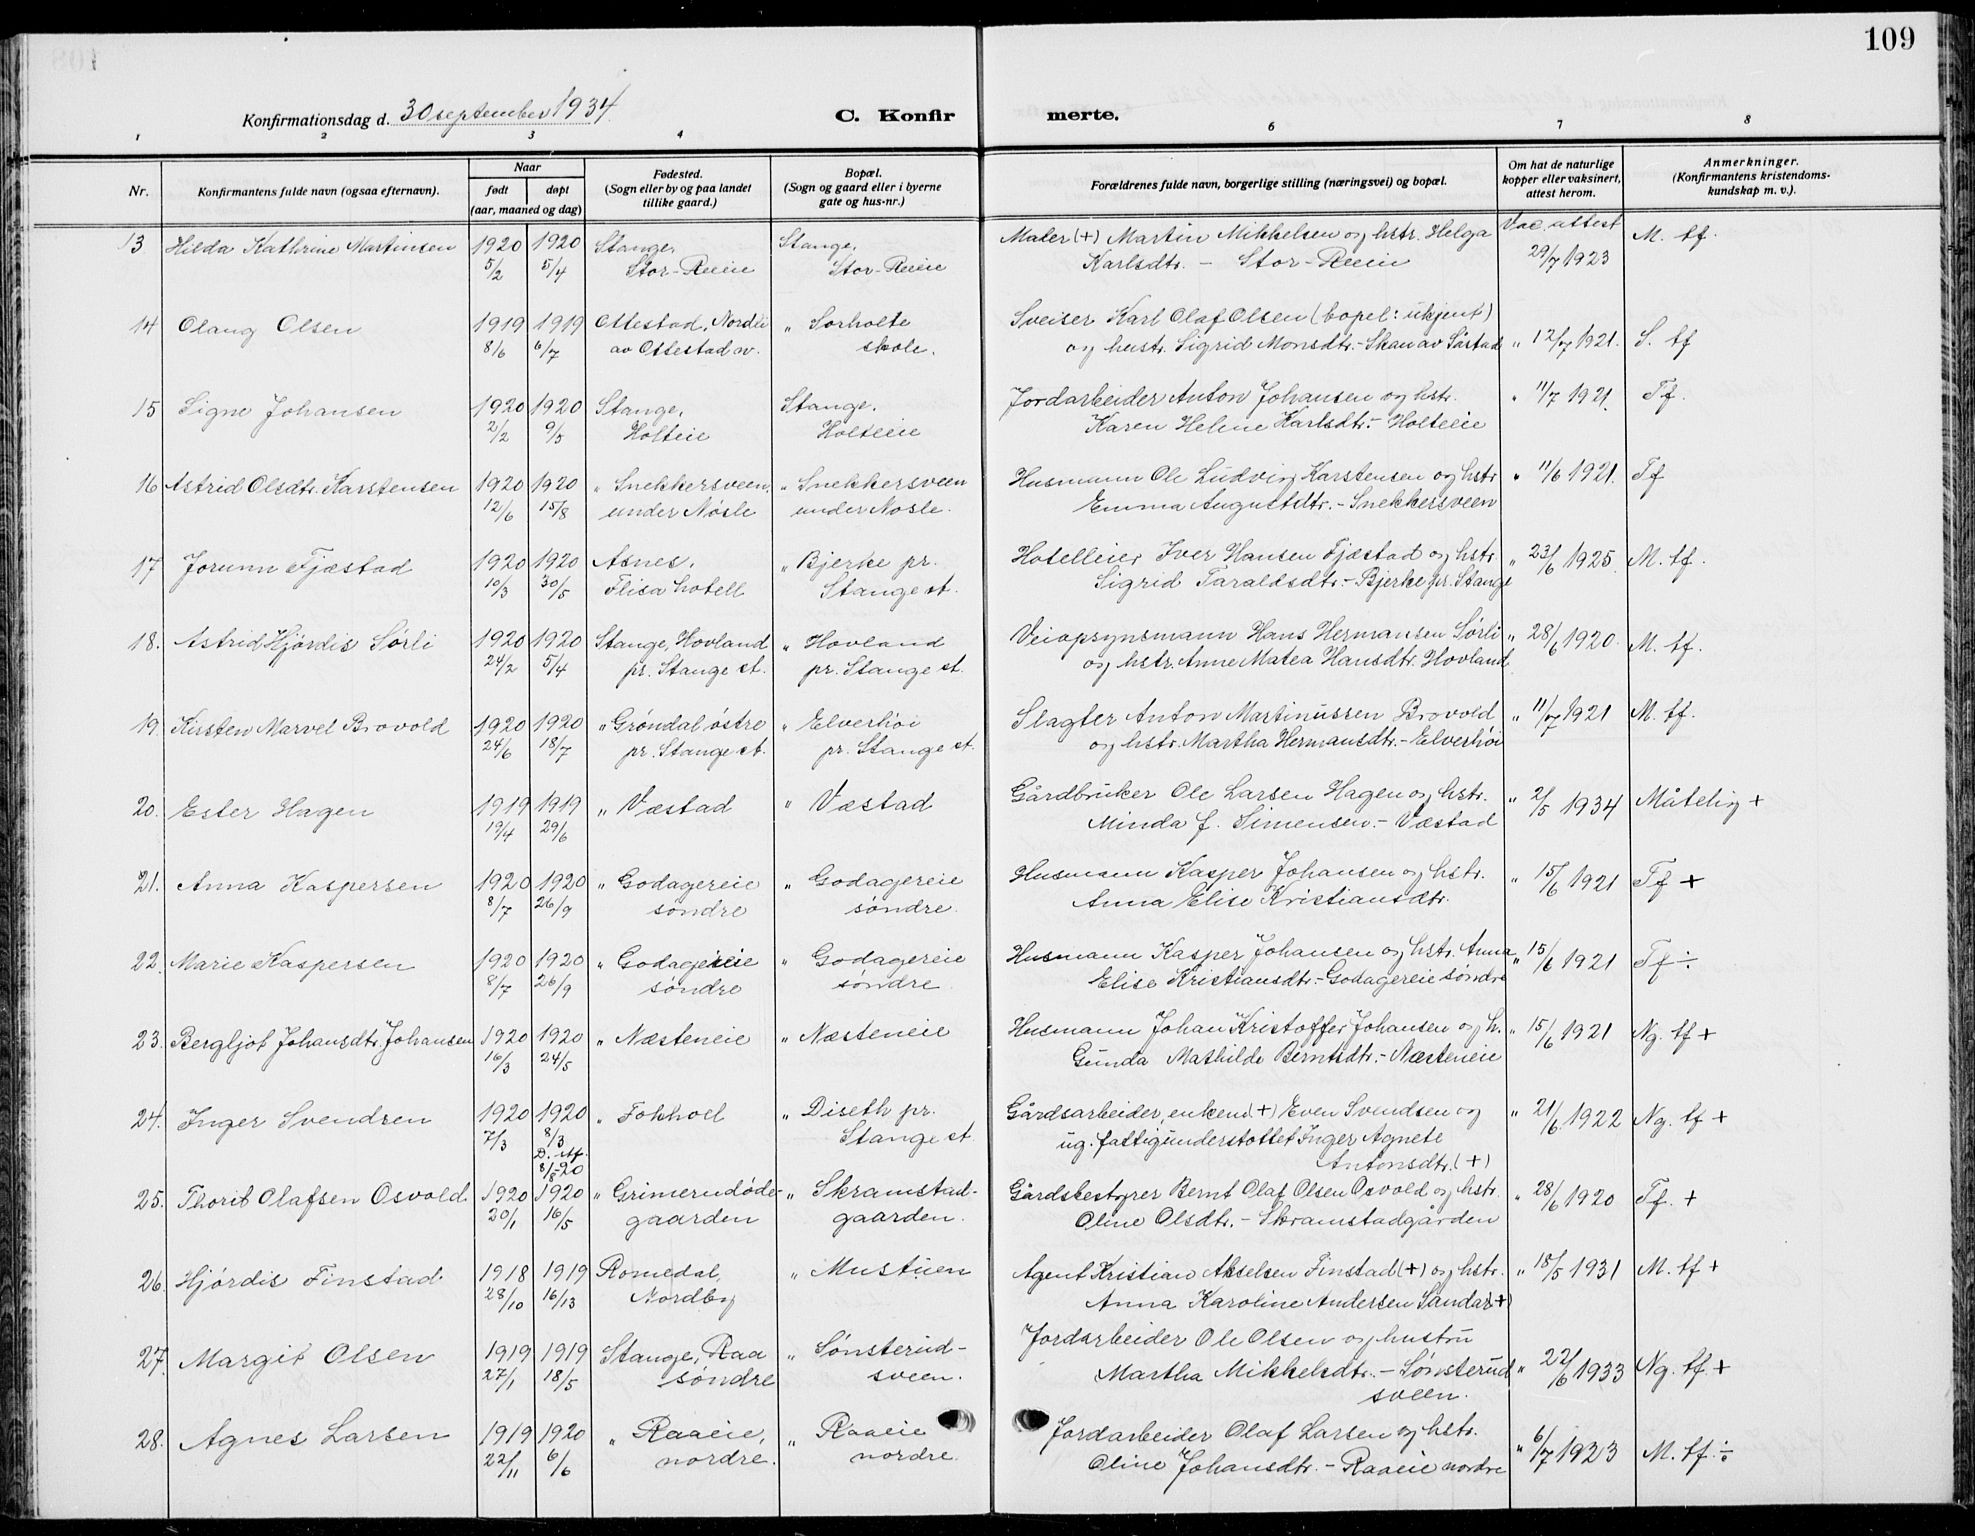 109
Konfirmationsdag d. 30 september 1934.
C. Konfirmerte.
1 2 3 4 6 7 8
Nr.
Konfirmantens fulde navn (ogsaa efternavn).
Naar
født døpt
(aar, maaned og dag)
Fødested.
(Sogn eller by og paa landet
tillike gaard.)
Bopæl.
(Sogn og gaard eller i byerne
gate og hus-nr.)
Forældrenes fulde navn, borgerlige stilling (næringsvei) og bopæl.
Om hat de naturlige
kopper eller vaksinert,
attest herom.
Anmerkninger.
(Konfirmantens kristendoms-
kundskap m. v.).
13 Hilda Kathrine Martinsen 1920 1920 Stange, Stange, Maler (+) Martin Mikkelsen og hstr. Helga Vac. attest M. tf.
5/2 5/4 Stor-Reeie Stor-Reeie Karlsdtr. – Stor-Reeie 29/7 1923
14 Olaug Olsen 1919 1919 Ottestad, Nordli " Sørholte Sveiser Karl Olaf Olsen (bopel: ukjent)
8/6 6/7 av Ottestad ov. skole. og hustr. Sigrid Monsdtr. – Skau av Såstad " 12/7 1921. S. tf
15 Signe Johansen 1920 1920 Stange, Stange, Jordarbeider Anton Johansen og hstr. " 11/7 1921. Tf.
2/2 9/5 Holteie Holteeie Karen Helene Karlsdtr. – Holteeie
16 Astrid Olsdtr. Karstensen 1920 1920 " Snekkersveen, " Snekkersveen Husmann Ole Ludvig Karstensen og hstr " 11/6 1921. Tf
12/6 15/8 under Nøsle under Nøsle. Emma Augustdtr. – Snekkersveen
17 Jorunn Fjæstad 1920 1920 Åsnes, " Bjerke pr. Hotelleier Iver Hansen Fjæstad og hstr. " 23/6 1925. M. tf.
10/3 30/5 Flisa hotell Stange st. Sigrid Taraldsdtr. – Bjerke pr. Stange
18. Astrid Hjørdis Sørli 1920 1920 Stange, Hovland " Hovland Veiopsynsmann Hans Hermansen Sørli " 28/6 1920. M. tf.
24/2 5/4 pr. Stange st. pr. Stange st. og hstr. Anne Matea Hansdtr. Hovland
19. Kirsten Marvel Brovold 1920 1920 " Grøndal østre " Elverhøi Slagter Anton Martinussen Brovold " 11/7 1921 M. tf.
24/6 18/7 pr. Stange st. pr. Stange st. og hstr. Martha Hermansdtr. – Elverhøi
20. Ester Hagen 1919 1919 " Væstad " Væstad Gårdbruker Ole Larsen Hagen og hstr. " 2/5 1934 Måtelig +
19/4 29/6 Minda f. Simensen. – Væstad
21. Anna Kaspersen 1920 1920 " Godagereie " Godagereie Husmann Kasper Johansen og hstr. " 15/6 1921 Tf +
8/7 26/9 søndre søndre. Anna Elise Kristiansdtr.
22. Marie Kaspersen 1920 1920 " Godagereie " Godagereie Husmann Kasper Johansen og hstr. Anna " 15/6 1921 Tf ÷
8/7 26/9 søndre søndre. Elise Kristiansdtr. – Godagereie søndre
23. Bergljot Johansdtr. Johansen 1920 1920 " Næsteneie " Næsteneie Husmann Johan Kristoffer Johansen og h. " 15/6 1921 Ng. tf +
16/3 24/5 Gunda Mathilde Berntsdtr. – Næsteneie
24. Inger Svendsen 1920 1920 " Fokhoel " Diseth pr. Gårdsarbeider, enkem (+) Even Svendsen og " 21/6 1922 Ng. tf +
7/3 8/3 Stange st. ug. fattigunderstøttet Inger Agnete
D. st.
8/8-20 Antonsdtr. (+)
25. Thorit Olafsen Osvold 1920 1920 " Grimerudøde- " Skramstad- Gårdsbestyrer Bernt Olaf Olsen Osvold og hstr. " 28/6 1920 Tf. +
20/1 16/5 gaarden gaarden. Oline Olsdtr. – Skramstadgården
26. Hjørdis Finstad 1918 1919 Romedal, " Mustuen Agent Kristian Akselsen Finstad (+) og hstr. " 18/5 1931 M. tf +
28/10 16/13 Nordby Anna Karoline Andersen Sandar (+)
27. Margit Olsen 1919 1919 Stange, Raa " Sønsterud- Jordarbeider Ole Olsen og hustru
27/1 18/5 søndre sveen. Martha Mikkelsdtr. – Sønsterud " 22/6 1933 Ng. tf +
sveen.
28. Agnes Larsen 1919 1920 " Raaeie, " Raaeie Jordarbeider Olaf Larsen og hstr. " 6/7 1923 M. tf. ÷
22/11 6/6 nordre. nordre. Oline Johansdtr. – Raaeie nordre